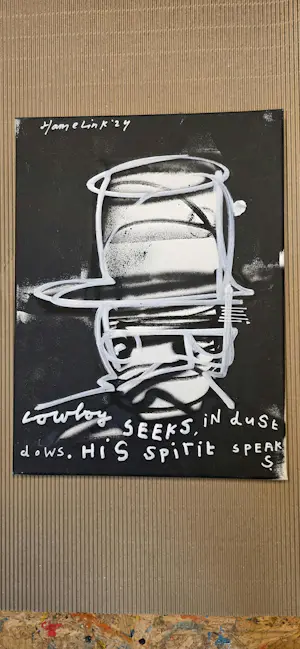 Hamelink '24
cowboy SEEKS, iN duSt
dows. HiS SpiRit SPEAK
S.